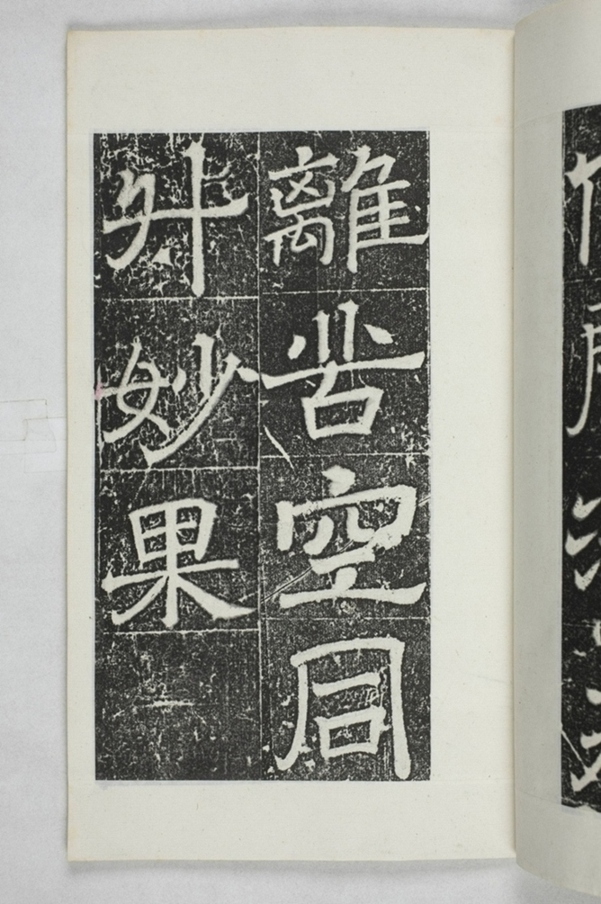 離苦空同
升妙果